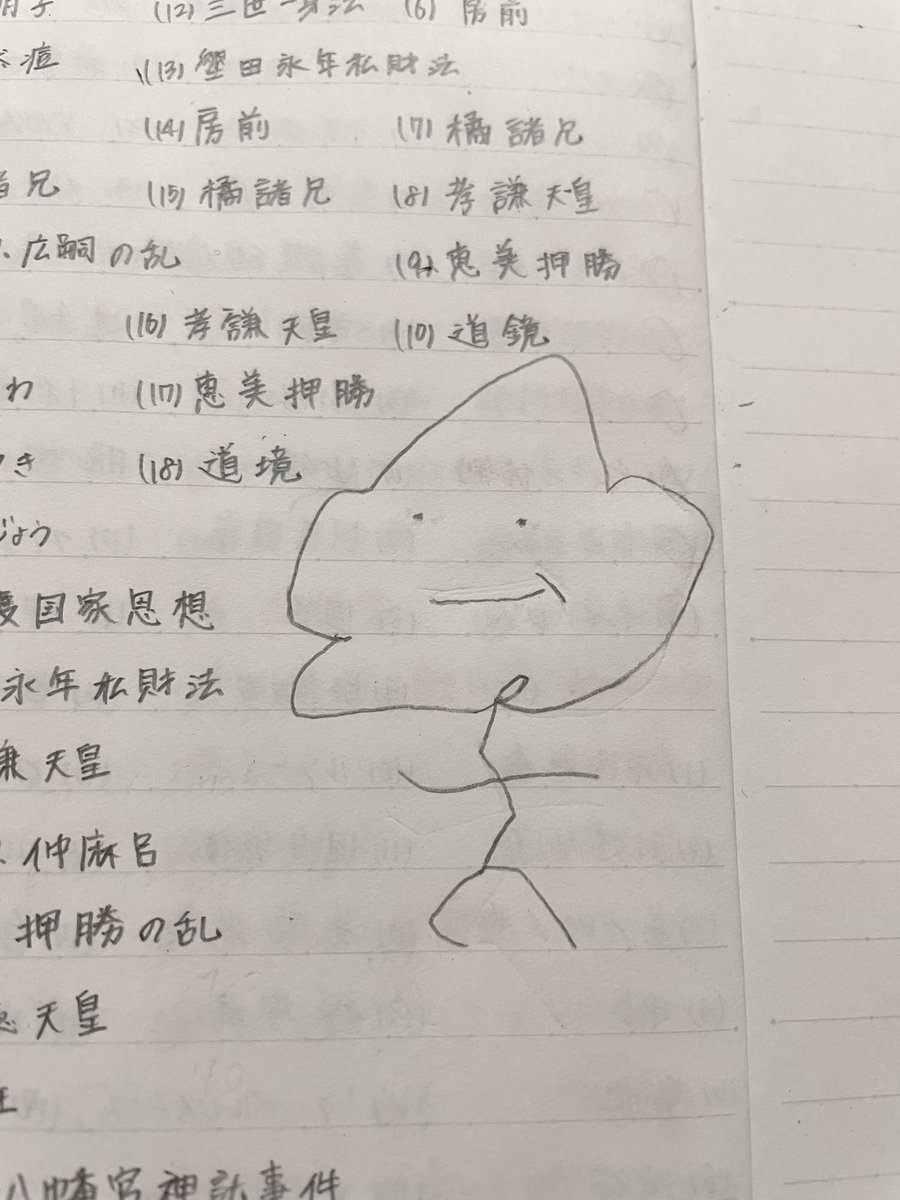 (12) 三世一身法 (6) 房前
(13) 墾田永年私財法
(14) 房前 (7) 橘諸兄
兄 (15) 橘諸兄 (8) 孝謙天皇
広嗣の乱 (9) 恵美押勝
(16) 孝謙天皇 (10) 道鏡
わ (17) 恵美押勝
き (18) 道境
じょう
国家思想
永年私財法
天皇
仲麻呂
押勝の乱
天皇
八幡宮神託事件